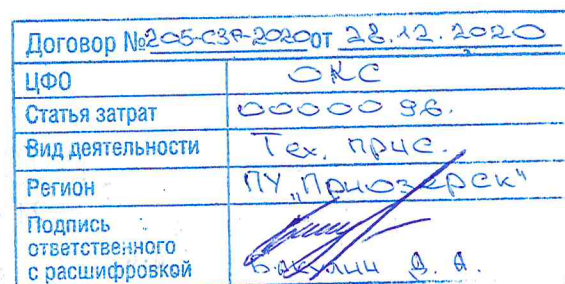 Договор №205-СЗА-2020от 28.12.2020
ЦФО ОКС
Статья затрат 0000096.
Вид деятельности Тех. прис.
Регион ПУ „Приозерск"
Подпись
ответственного
с расшифровкой Бакулин Д. А.